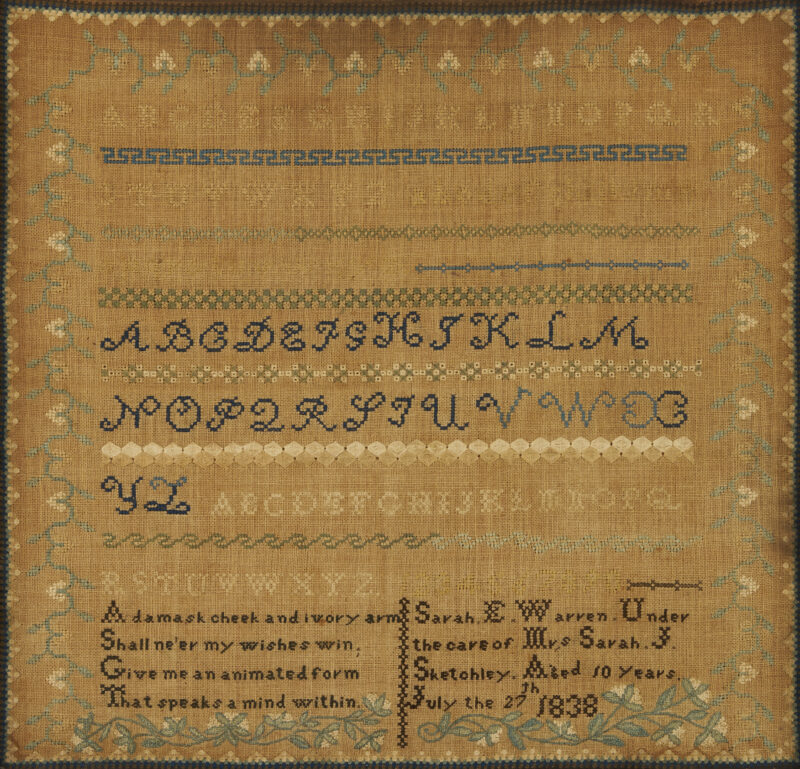 A B C D E F G H I J K L M N O P Q R
S T U V W X Y Z
A B C D E F G H I K L M
N O P Q R S T U V W X
Y Z A B C D E F G H I J K L M N O P Q
R S T U V W X Y Z
A damask cheek and ivory arm
Shall ne'er my wishes win,
Give me an animated form
That speaks a mind within.
Sarah. E. Warren. Under
the care of Mrs Sarah. J.
Sketchley. Aged 10 Years.
July the 27th 1838